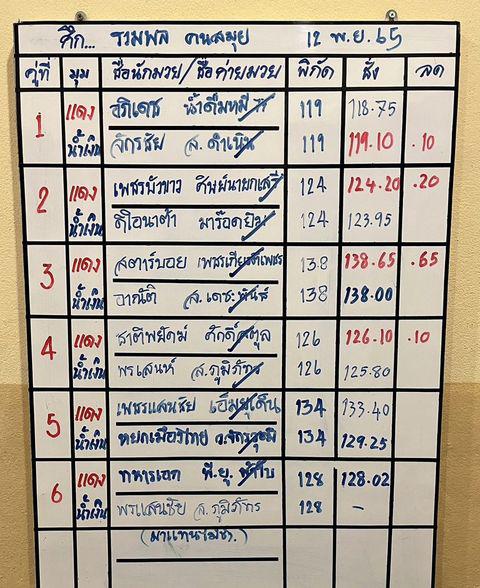 ศึก... รวมพล คนสมุย 12 พ.ย. 65
คู่ที่ มุม ชื่อนักมวย/ชื่อค่ายมวย พิกัด ชั่ง ลด
1 แดง อภิเดช น้ำดื่มหมี 119 118.75
น้ำเงิน จักรชัย ส.ดำเนิน 119 119.10 .10
2 แดง เพชรบัวขาว ศิษย์นายกเสรี 124 124.20 .20
น้ำเงิน ดีโอนาต้า มาร็อคยิม 124 123.95
3 แดง สตาร์บอย 138 138.65 .65
น้ำเงิน อาณัติ ส.เดชะพันธ์ 138 138.00
4 แดง ชาติพยัคฆ์ ศักดิ์สตูล 126 126.10 .10
น้ำเงิน พรเสนห์ ส.ภูมิภัทร 126 125.80
5 แดง เพชรแสนชัย 134 133.40
น้ำเงิน หยกเมืองไทย 134 129.25
6 แดง ทหารเอก พี.ยู. 128 128.02
น้ำเงิน พรแสนชัย ส.ภูมิภัทร 128 -